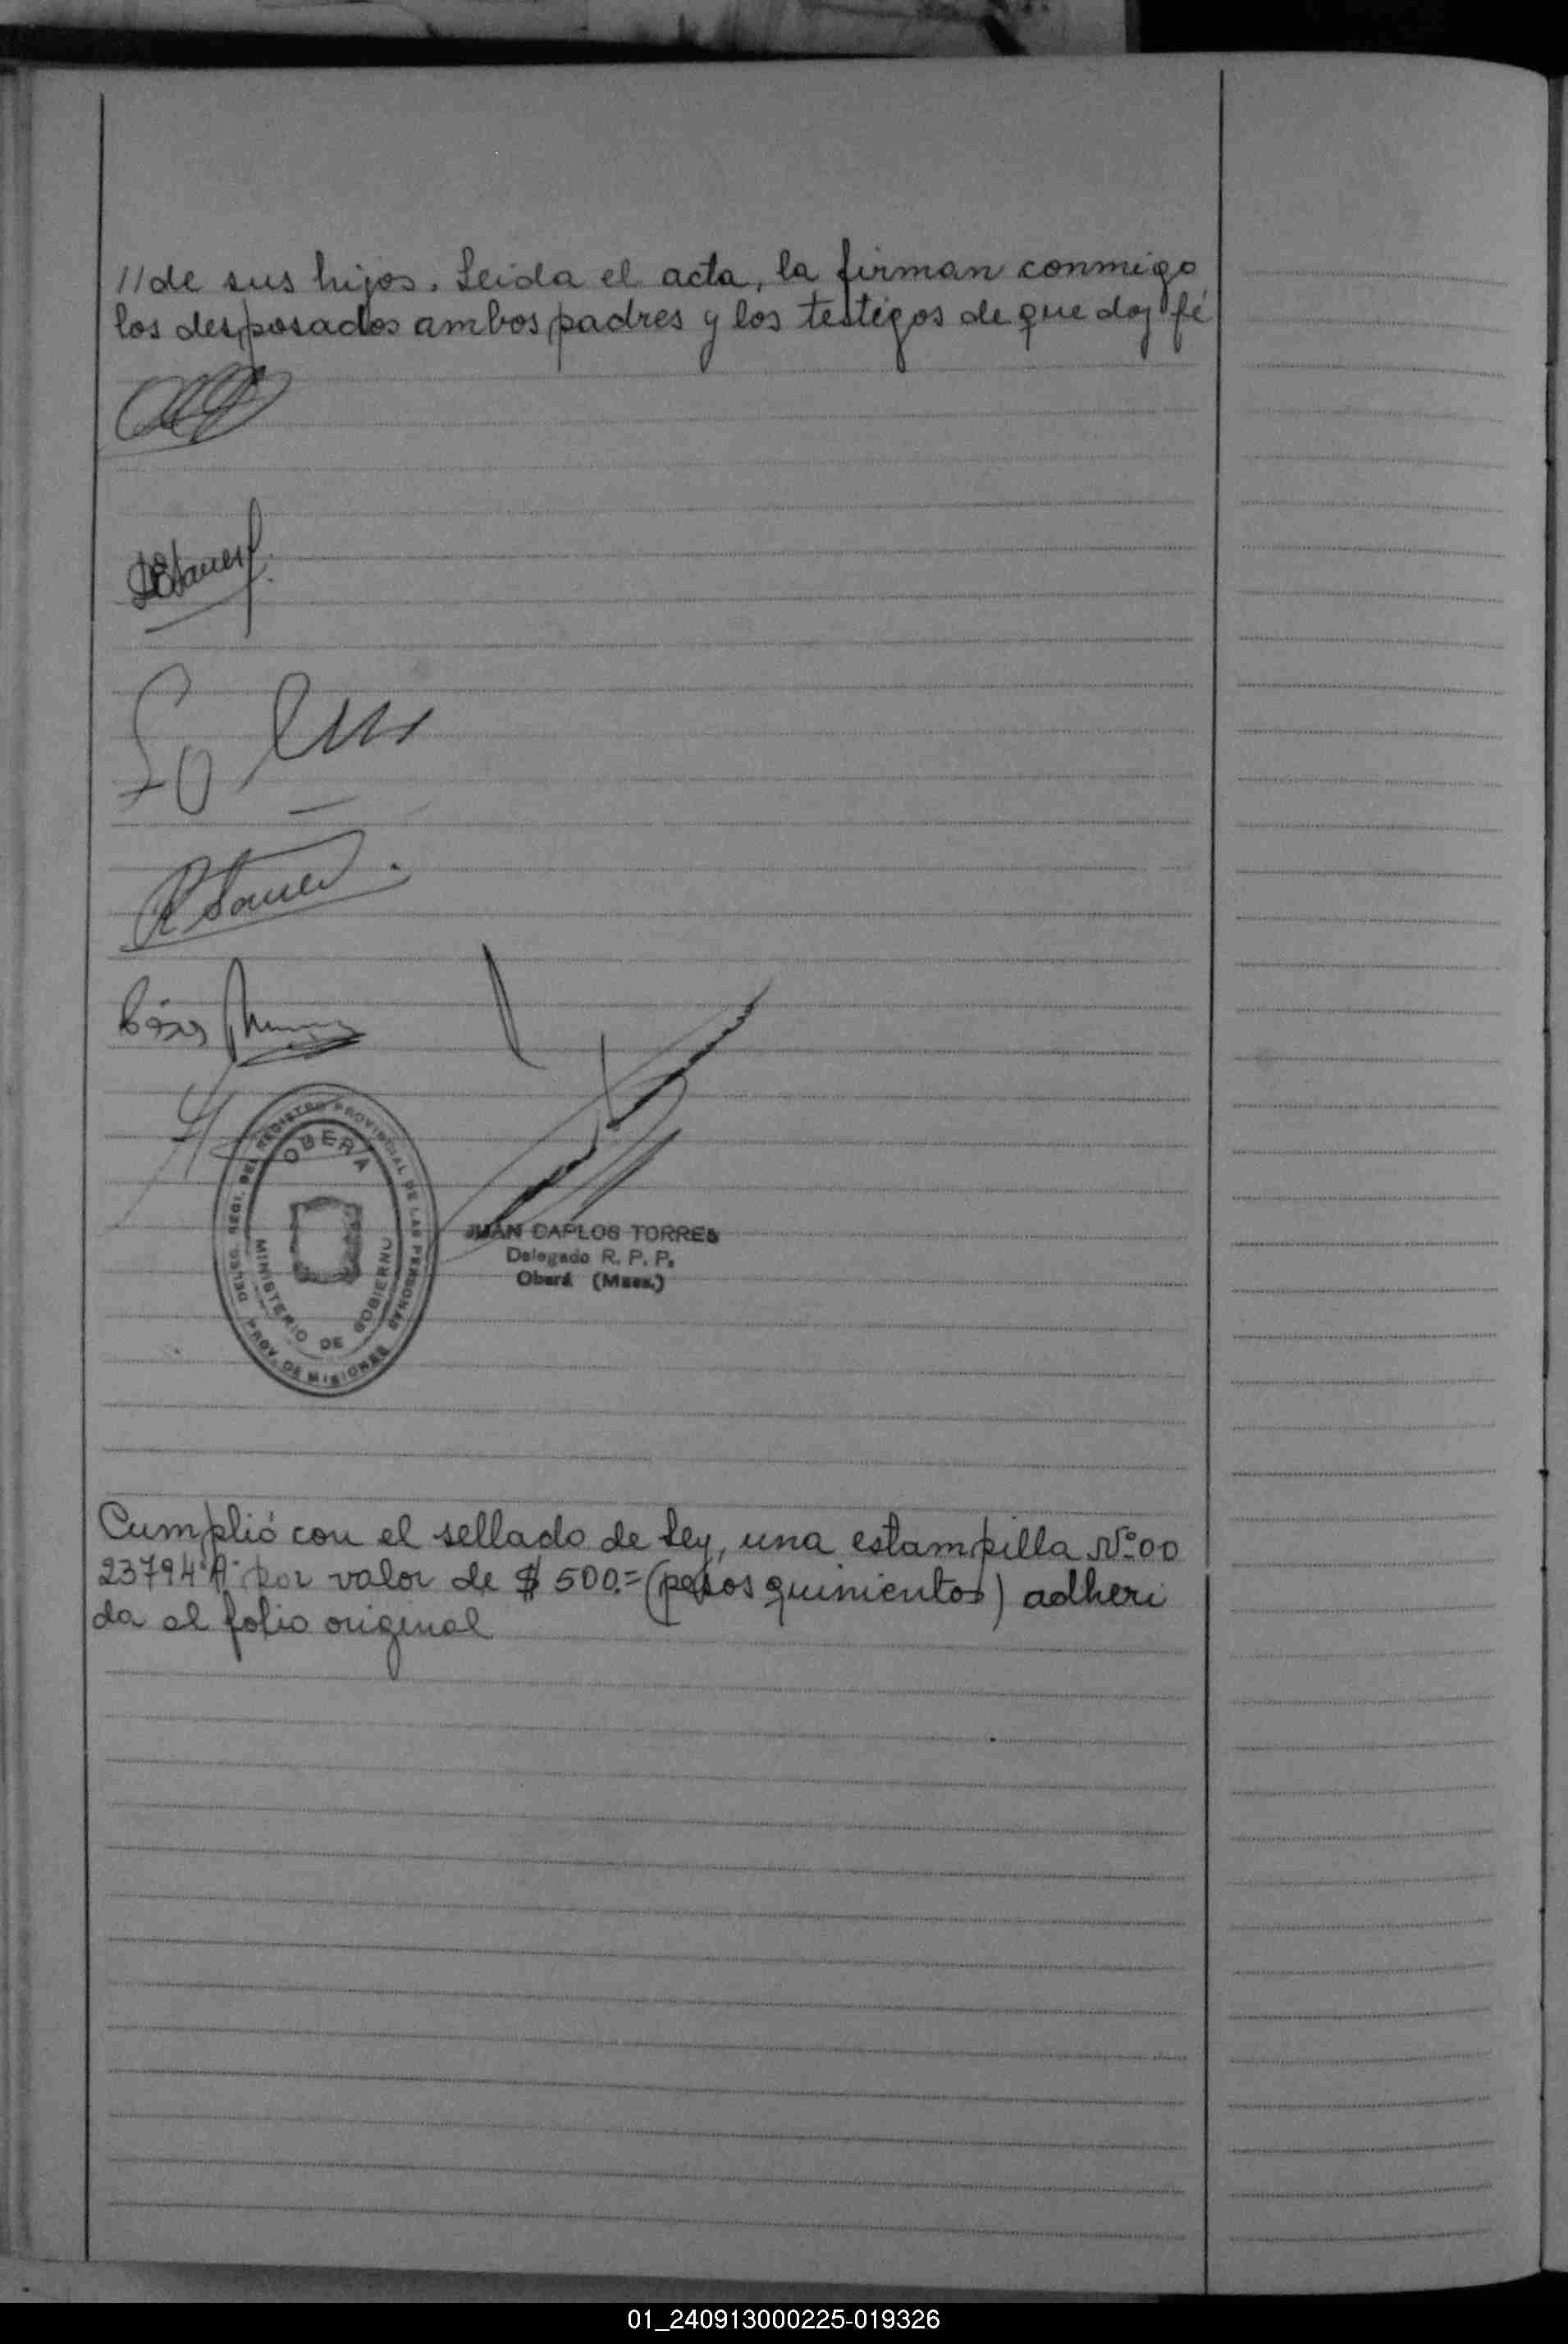 //de sus hijos. Leida el acta, la firman conmigo
los desposados ambos padres y los testigos de que doy fé
DELEG. REGI. DEL REGISTRO PROVINCIAL DE LAS PERSONAS
OBERA
MINISTERIO DE GOBIERNO
PROV. DE MISIONES
JUAN CARLOS TORRES
Delegado R. P. P.
Oberá (Mnes.)
Cumplió con el sellado de Ley, una estampilla Nº 00
23794 "A" por valor de $ 500.= (pesos quinientos) adheri
da al folio original
01_240913000225-019326